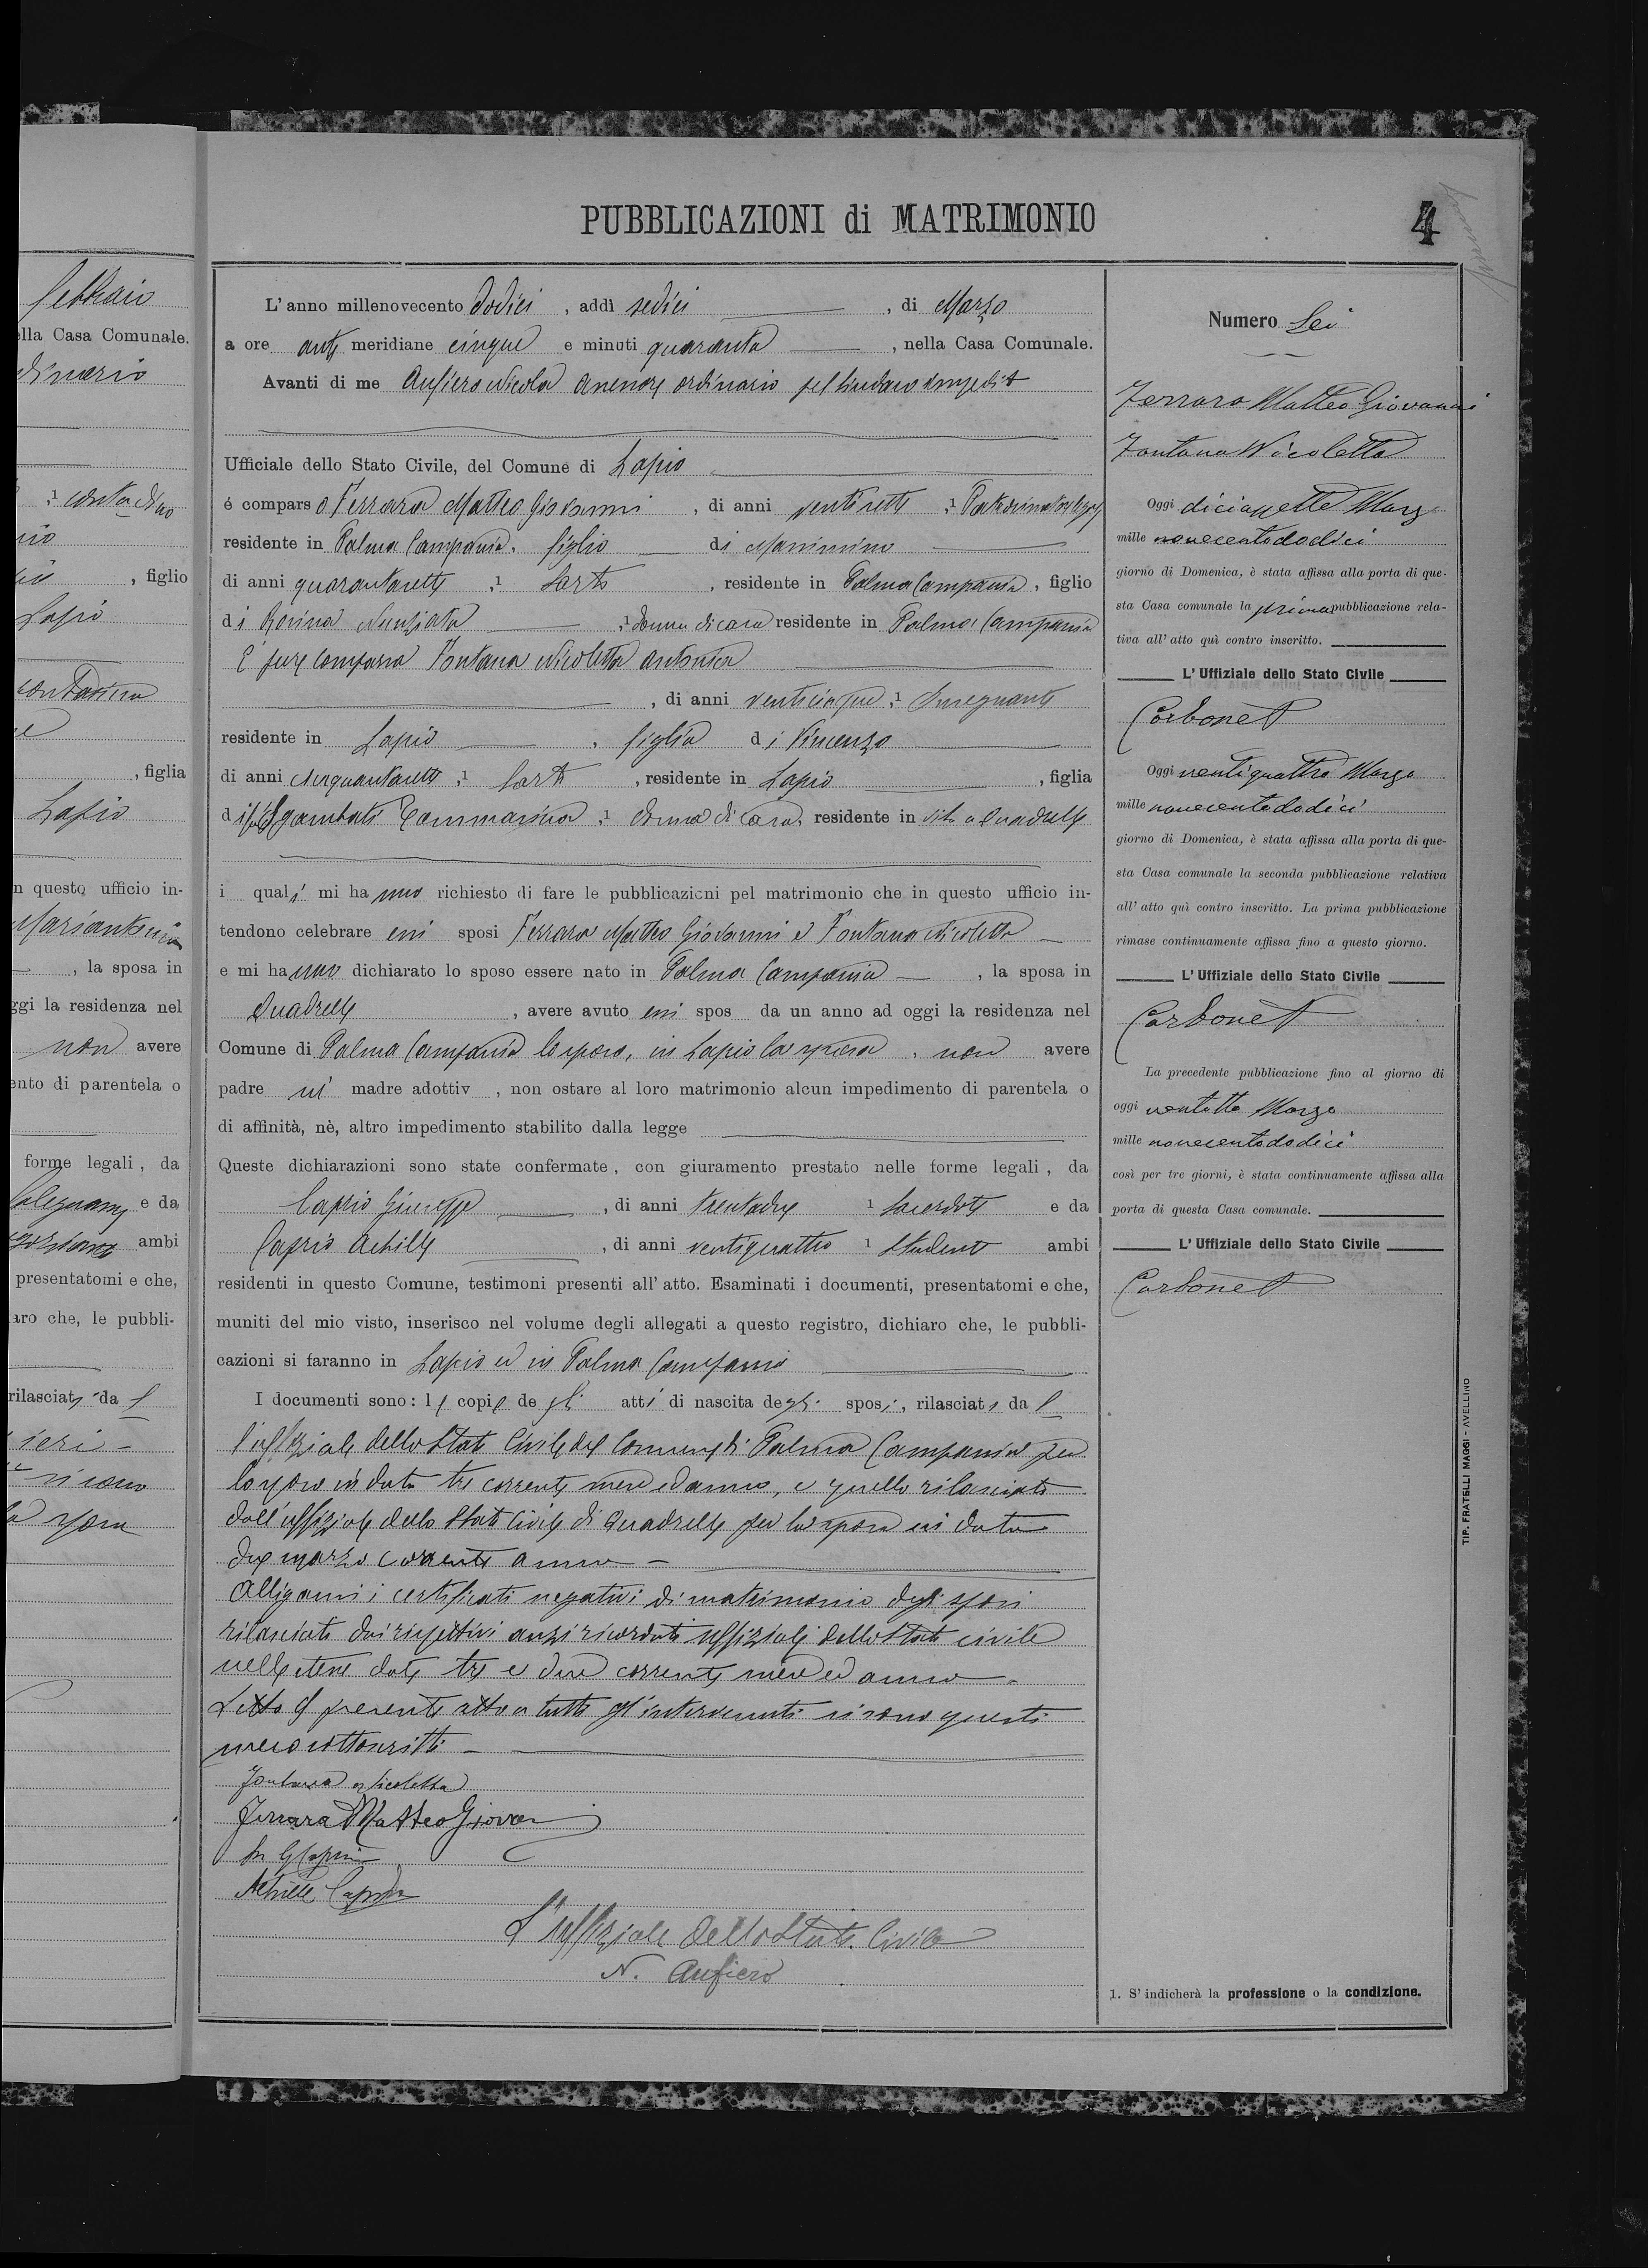 febbraio
ella Casa Comunale.
dinario
contadino
, figlio
Lapio
contadina
, figlia
Lapio
n questo ufficio in-
Mariantonia
, la sposa in
ggi la residenza nel
non avere
ento di parentela o
forme legali, da
e da
ambi
presentatomi e che,
aro che, le pubbli-
rilasciat da l
ieri -
si sono
PUBBLICAZIONI di MATRIMONIO
4
L'anno millenovecento dodici , addì sedici , di Marzo
a ore anti meridiane cinque e minuti quaranta , nella Casa Comunale.
Avanti di me Aufiero Nicola assessore ordinario pel Sindaco impedito
Ufficiale dello Stato Civile, del Comune di Lapio
é comparso Ferrara Matteo Giovanni , di anni ventisette , 1
residente in Palma Campania , figlio di Massimino
di anni quarantasette , 1 Sarto , residente in Palma Campania , figlio
di Rosina Nunziata , 1 donna di casa residente in Palma Campania
È pure comparsa Fontana Nicoletta Antonia
, di anni venticinque , 1 Insegnante
residente in Lapio , figlia di Vincenzo
di anni cinquantasette , 1 Sarto , residente in Lapio , figlia
di fu Sgambati Tommasina , 1 donna di casa, residente in vita a Quadrelle
i quali mi hanno richiesto di fare le pubblicazioni pel matrimonio che in questo ufficio in-
tendono celebrare essi sposi Ferrara Matteo Giovanni e Fontana Nicoletta
e mi hanno dichiarato lo sposo essere nato in Palma Campania , la sposa in
Quadrelle , avere avuto essi spos da un anno ad oggi la residenza nel
Comune di Palma Campania lo sposo, in Lapio la sposa , non avere
padre nè madre adottiv , non ostare al loro matrimonio alcun impedimento di parentela o
di affinità, nè, altro impedimento stabilito dalla legge
Queste dichiarazioni sono state confermate, con giuramento prestato nelle forme legali, da
Caprio Giuseppe , di anni trentadue 1 Sacerdote e da
Caprio Achille , di anni ventiquattro 1 Studente ambi
residenti in questo Comune, testimoni presenti all'atto. Esaminati i documenti, presentatomi e che,
muniti del mio visto, inserisco nel volume degli allegati a questo registro, dichiaro che, le pubbli-
cazioni si faranno in Lapio ed in Palma Campania
I documenti sono: le copie degli atti di nascita degli sposi, rilasciate dal
l'uffiziale dello Stato Civile del Comune di Palma Campania per
lo sposo in data tre corrente mese ed anno, e quello rilasciato
dall'uffiziale dello Stato Civile di Quadrelle per la sposa in data
due marzo corrente anno -
Alligansi i certificati negativi di matrimonio degli sposi
rilasciati dai rispettivi anzi ricordati uffiziali dello Stato civile
nelle stesse date tre e due corrente mese ed anno -
Letto il presente atto a tutti gl'intervenuti si sono questi
meco sottoscritti -
Fontana Nicoletta
Ferrara Matteo Giovanni
Achille Caprio
L'uffiziale dello Stato Civile
N. Aufiero
Numero Sei
Ferrara Matteo Giovanni
Fontana Nicoletta
Oggi diciassette Marzo
mille novecentododici
giorno di Domenica, è stata affissa alla porta di que-
sta Casa comunale la prima pubblicazione rela-
tiva all'atto quì contro inscritto.
L'Uffiziale dello Stato Civile
Oggi ventiquattro Marzo
mille novecentododici
giorno di Domenica, è stata affissa alla porta di que-
sta Casa comunale la seconda pubblicazione relativa
all'atto quì contro inscritto. La prima pubblicazione
rimase continuamente affissa fino a questo giorno.
L'Uffiziale dello Stato Civile
La precedente pubblicazione fino al giorno di
oggi ventotto Marzo
mille novecentododici
così per tre giorni, è stata continuamente affissa alla
porta di questa Casa comunale.
L'Uffiziale dello Stato Civile
1. S'indicherà la professione o la condizione.
TIP. FRATELLI MAGGI - AVELLINO